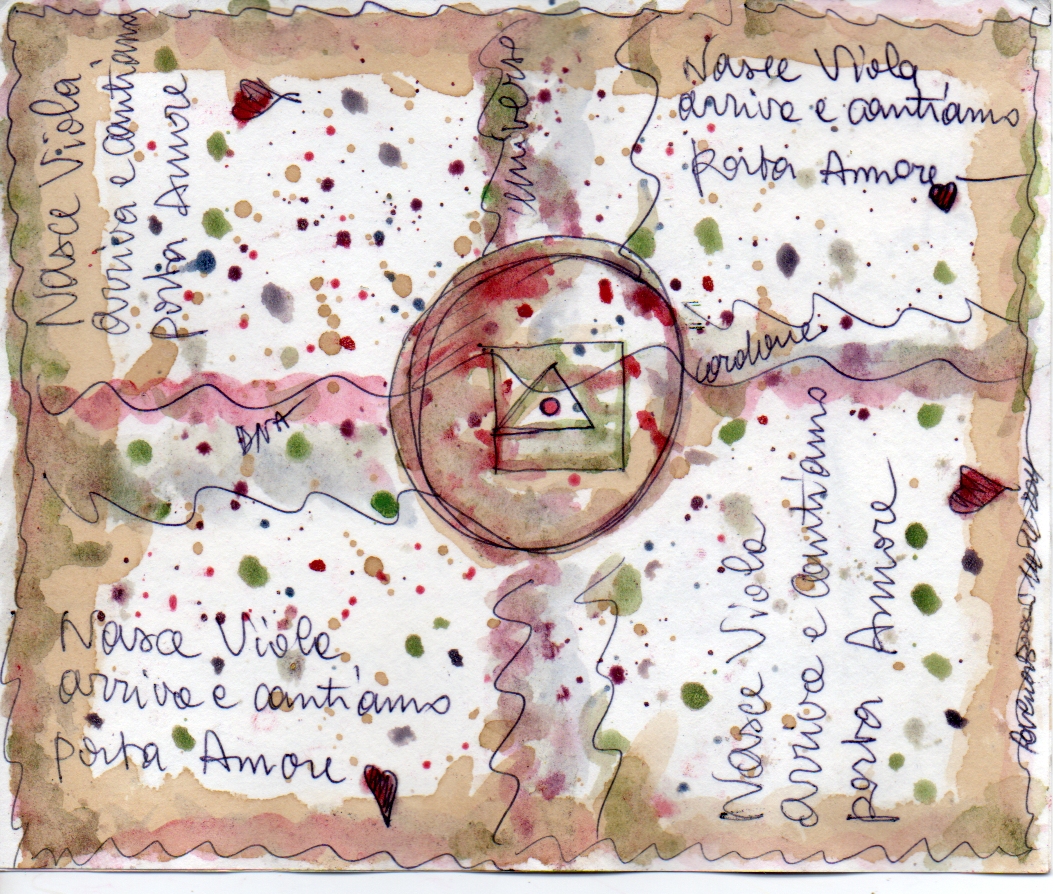 Nasce Viola
arriva e cantiamo
porta Amore
universo
Nasce Viola
arriva e cantiamo
porta Amore
cordone
DNA
Nasce Viola
arriva e cantiamo
porta Amore
Nasce Viola
arriva e cantiamo
porta Amore